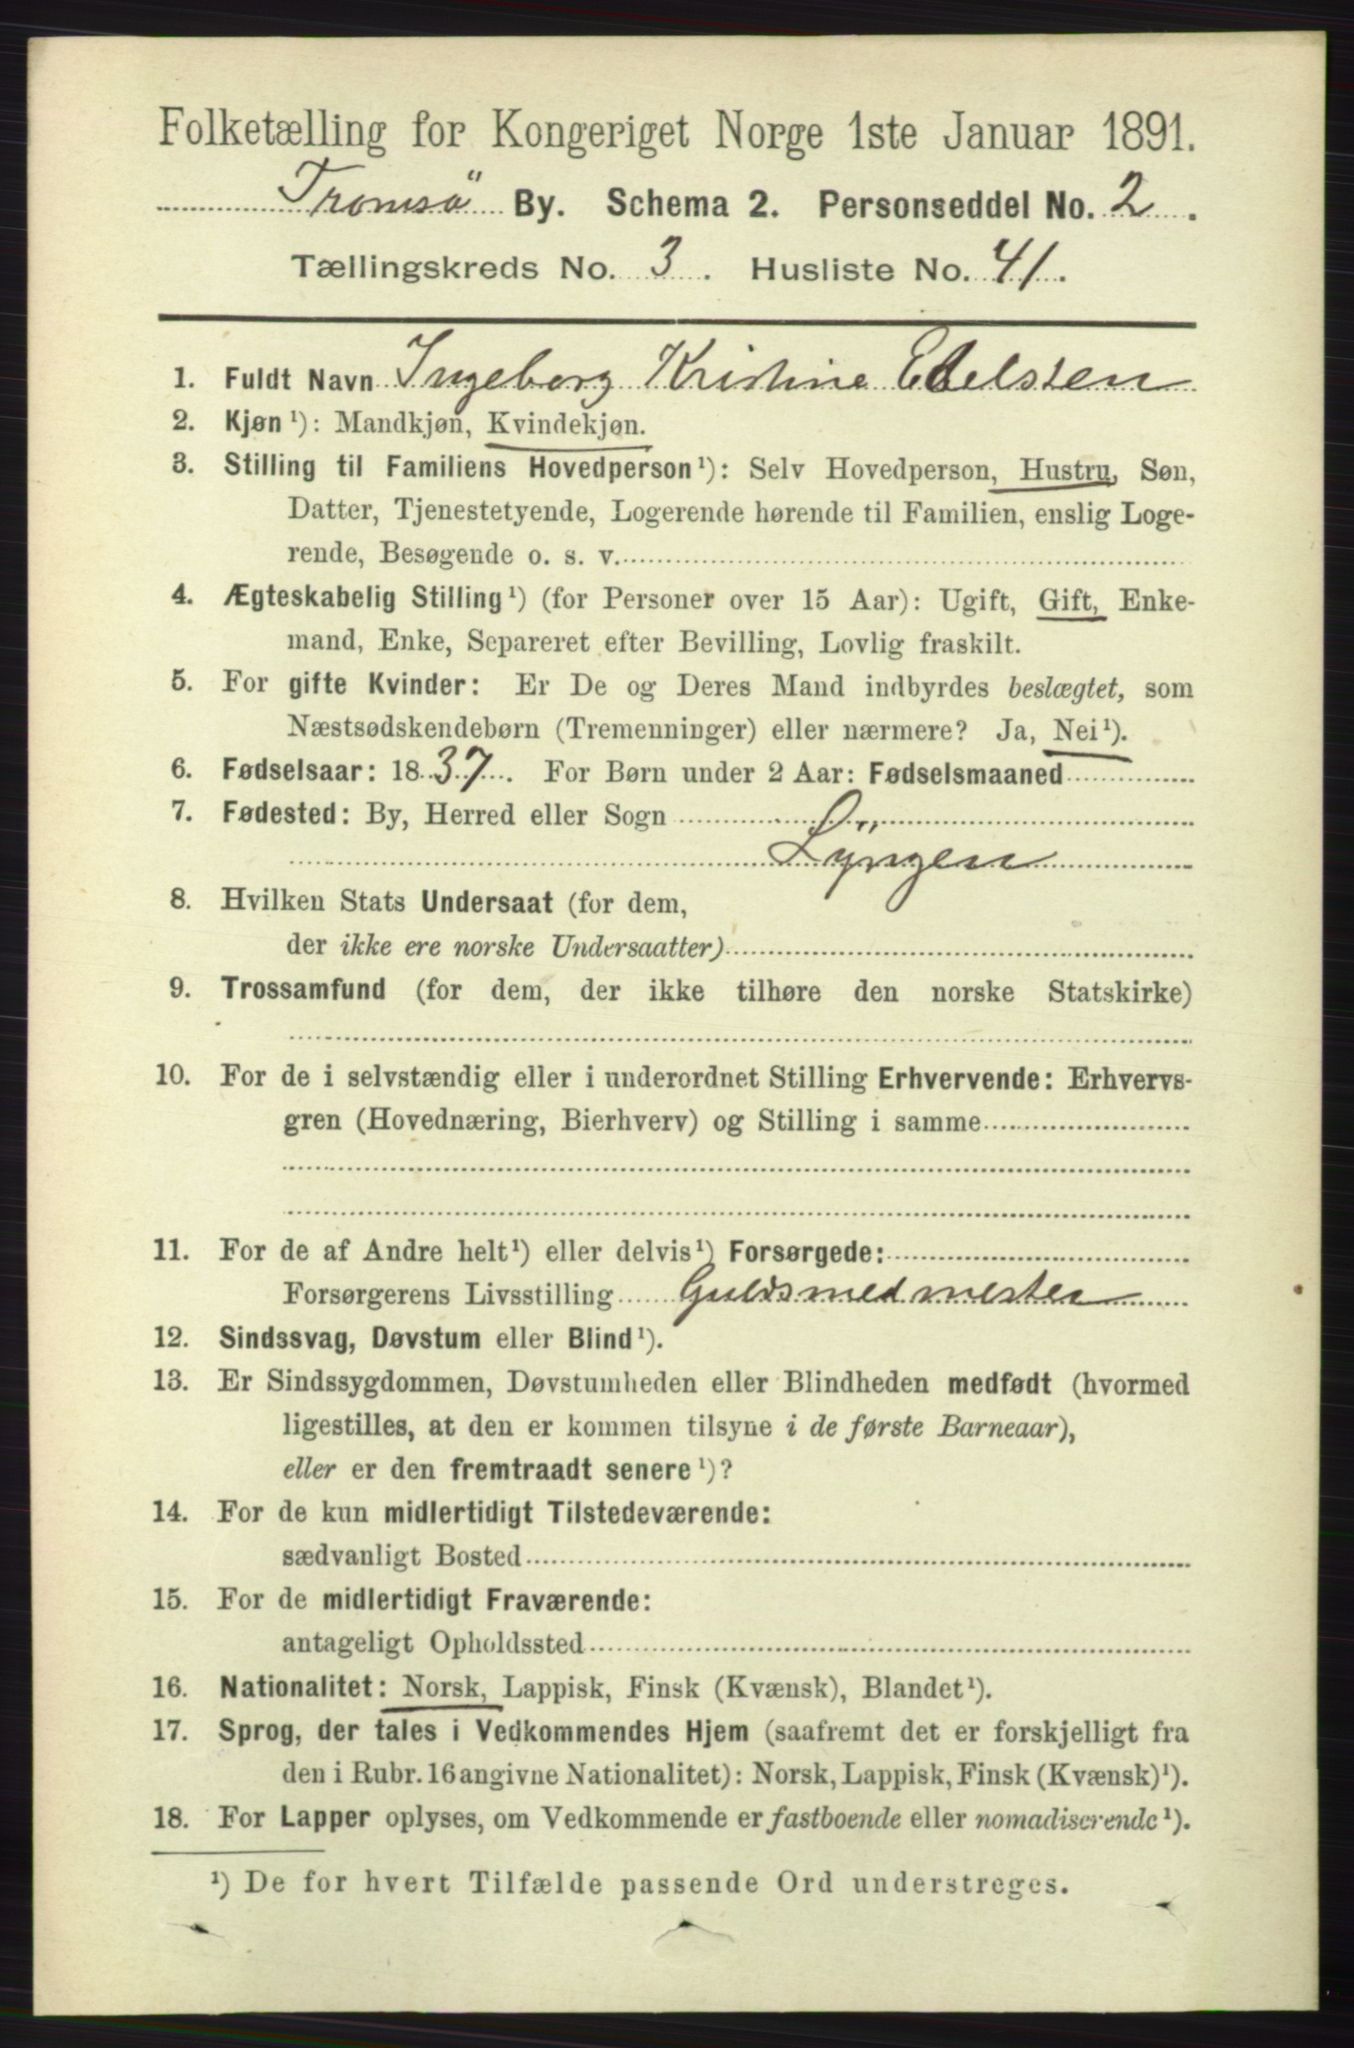 Folketælling for Kongeriget Norge 1ste Januar 1891.
Tromsö By. Schema 2. Personseddel No. 2.
Tællingskreds No. 3. Husliste No. 41.
1. Fuldt Navn Ingeborg Kristine Edelsten
2. Kjøn ¹): Mandkjøn, Kvindekjøn.
3. Stilling til Familiens Hovedperson¹): Selv Hovedperson, Hustru, Søn,
Datter, Tjenestetyende, Logerende hørende til Familien, enslig Loge-
rende, Besøgende o. s. v.
4. Ægteskabelig Stilling¹) (for Personer over 15 Aar): Ugift, Gift, Enke-
mand, Enke, Separeret efter Bevilling, Lovlig fraskilt.
5. For gifte Kvinder: Er De og Deres Mand indbyrdes beslægtet, som
Næstsødskendebørn (Tremenninger) eller nærmere? Ja, Nei¹).
6. Fødselsaar: 1837. For Børn under 2 Aar: Fødselsmaaned
7. Fødested: By, Herred eller Sogn
Lÿngen
8. Hvilken Stats Undersaat (for dem,
der ikke ere norske Undersaatter)
9. Trossamfund (for dem, der ikke tilhøre den norske Statskirke)
10. For de i selvstændig eller i underordnet Stilling Erhvervende: Erhvervs-
gren (Hovednæring, Bierhverv) og Stilling i samme
11. For de af Andre helt¹) eller delvis¹) Forsørgede:
Forsørgerens Livsstilling Guldsmedmester
12. Sindssvag, Døvstum eller Blind¹).
13. Er Sindssygdommen, Døvstumheden eller Blindheden medfødt (hvormed
ligestilles, at den er kommen tilsyne i de første Barneaar),
eller er den fremtraadt senere¹)?
14. For de kun midlertidigt Tilstedeværende:
sædvanligt Bosted
15. For de midlertidigt Fraværende:
antageligt Opholdssted
16. Nationalitet: Norsk, Lappisk, Finsk (Kvænsk), Blandet¹).
17. Sprog, der tales i Vedkommendes Hjem (saafremt det er forskjelligt fra
den i Rubr. 16 angivne Nationalitet): Norsk, Lappisk, Finsk (Kvænsk)¹).
18. For Lapper oplyses, om Vedkommende er fastboende eller nomadiserende¹).
¹) De for hvert Tilfælde passende Ord understreges.